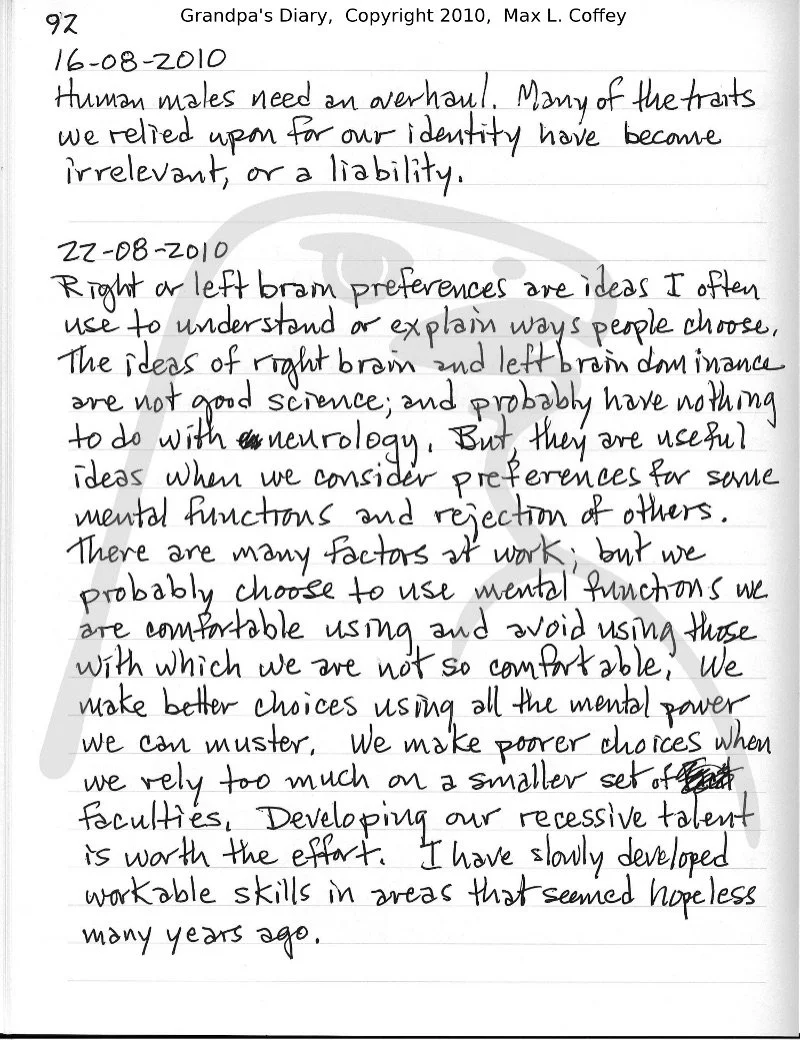 Grandpa's Diary, Copyright 2010, Max L. Coffey
92
16-08-2010
Human males need an overhaul. Many of the traits
we relied upon for our identity have become
irrelevant, or a liability.
22-08-2010
Right or left brain preferences are ideas I often
use to understand or explain ways people choose.
The ideas of right brain and left brain dominance
are not good science; and probably have nothing
to do with neurology. But, they are useful
ideas when we consider preferences for some
mental functions and rejection of others.
There are many factors at work; but we
probably choose to use mental functions we
are comfortable using and avoid using those
with which we are not so comfortable. We
make better choices using all the mental power
we can muster. We make poorer choices when
we rely too much on a smaller set of
faculties. Developing our recessive talent
is worth the effort. I have slowly developed
workable skills in areas that seemed hopeless
many years ago.